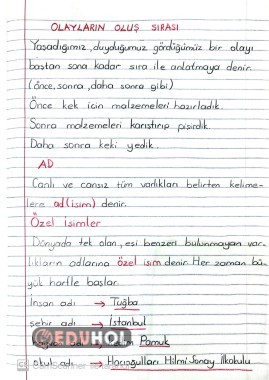 OLAYLARIN OLUŞ SIRASI
Yaşadığımız, duyduğumuz gördüğümüz bir olayı
baştan sona kadar sıra ile anlatmaya denir.
(önce, sonra, daha sonra gibi)
Önce kek için malzemeleri hazırladık.
Sonra malzemeleri karıştırıp pişirdik.
Daha sonra keki yedik.
AD
Canlı ve cansız tüm varlıkları belirten kelime-
lere ad (isim) denir.
Özel isimler
Dünyada tek olan, esi benzeri bulunmayan var-
lıkların adlarına özel isim denir. Her zaman bü-
yük harfle başlar.
İnsan adı → Tuğba
şehir adı → İstanbul
EDUHOL
Pamuk
okul adı → Hacıoğulları Hilmi Sonay İlkokulu
CS CamScanner